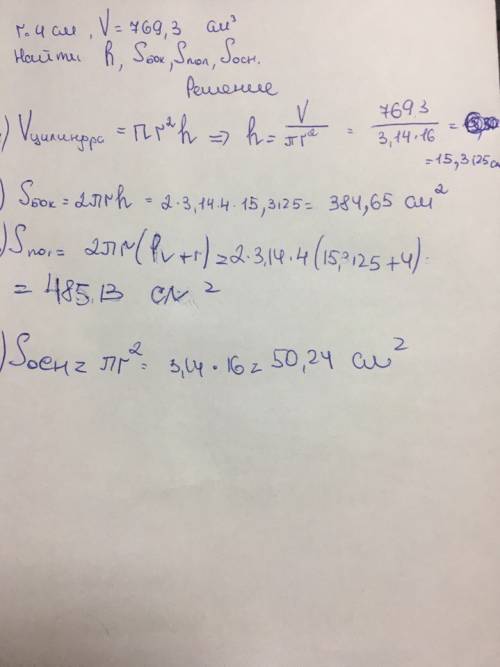 r=4 см, V=769,3 см³
Найти h, Sбок, Sпол, Sосн.
Решение
) Vцилиндра = πr²h => h = V/πr² = 769.3/3,14·16 =
= 15,3125 см
) Sбок = 2πrh = 2·3,14·4·15,3125 = 384,65 см²
) Sпол = 2πr(h+r) = 2·3,14·4(15,3125+4)
= 485,13 см²
) Sосн = πr² = 3,14·16 = 50,24 см²